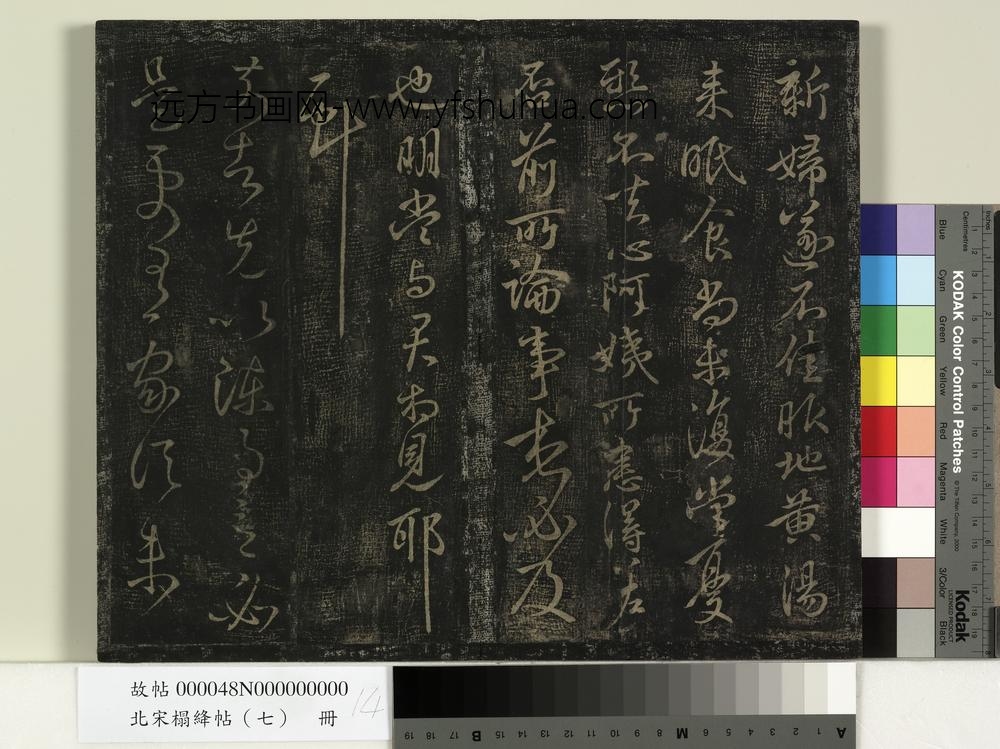 新婦遂不佳服地黃湯
來眠食尚未復常憂
馳不去心阿姨所患得差
否前所論事想必及
也明當與君相見耶
耳
告先以陳事意必
是更有家信未
远方书画网-www.yfshuhua.com
故帖 000048N000000000
北宋榻絳帖（七） 冊
14
KODAK Color Control Patches
© The Tiffen Company, 2000
Kodak
LICENSED PRODUCT
Inches
Centimetres
Blue
Cyan
Green
Yellow
Red
Magenta
White
3/Color
Black
A 1 2 3 4 5 6 M 8 9 10 11 12 13 14 15 B 17 18 19